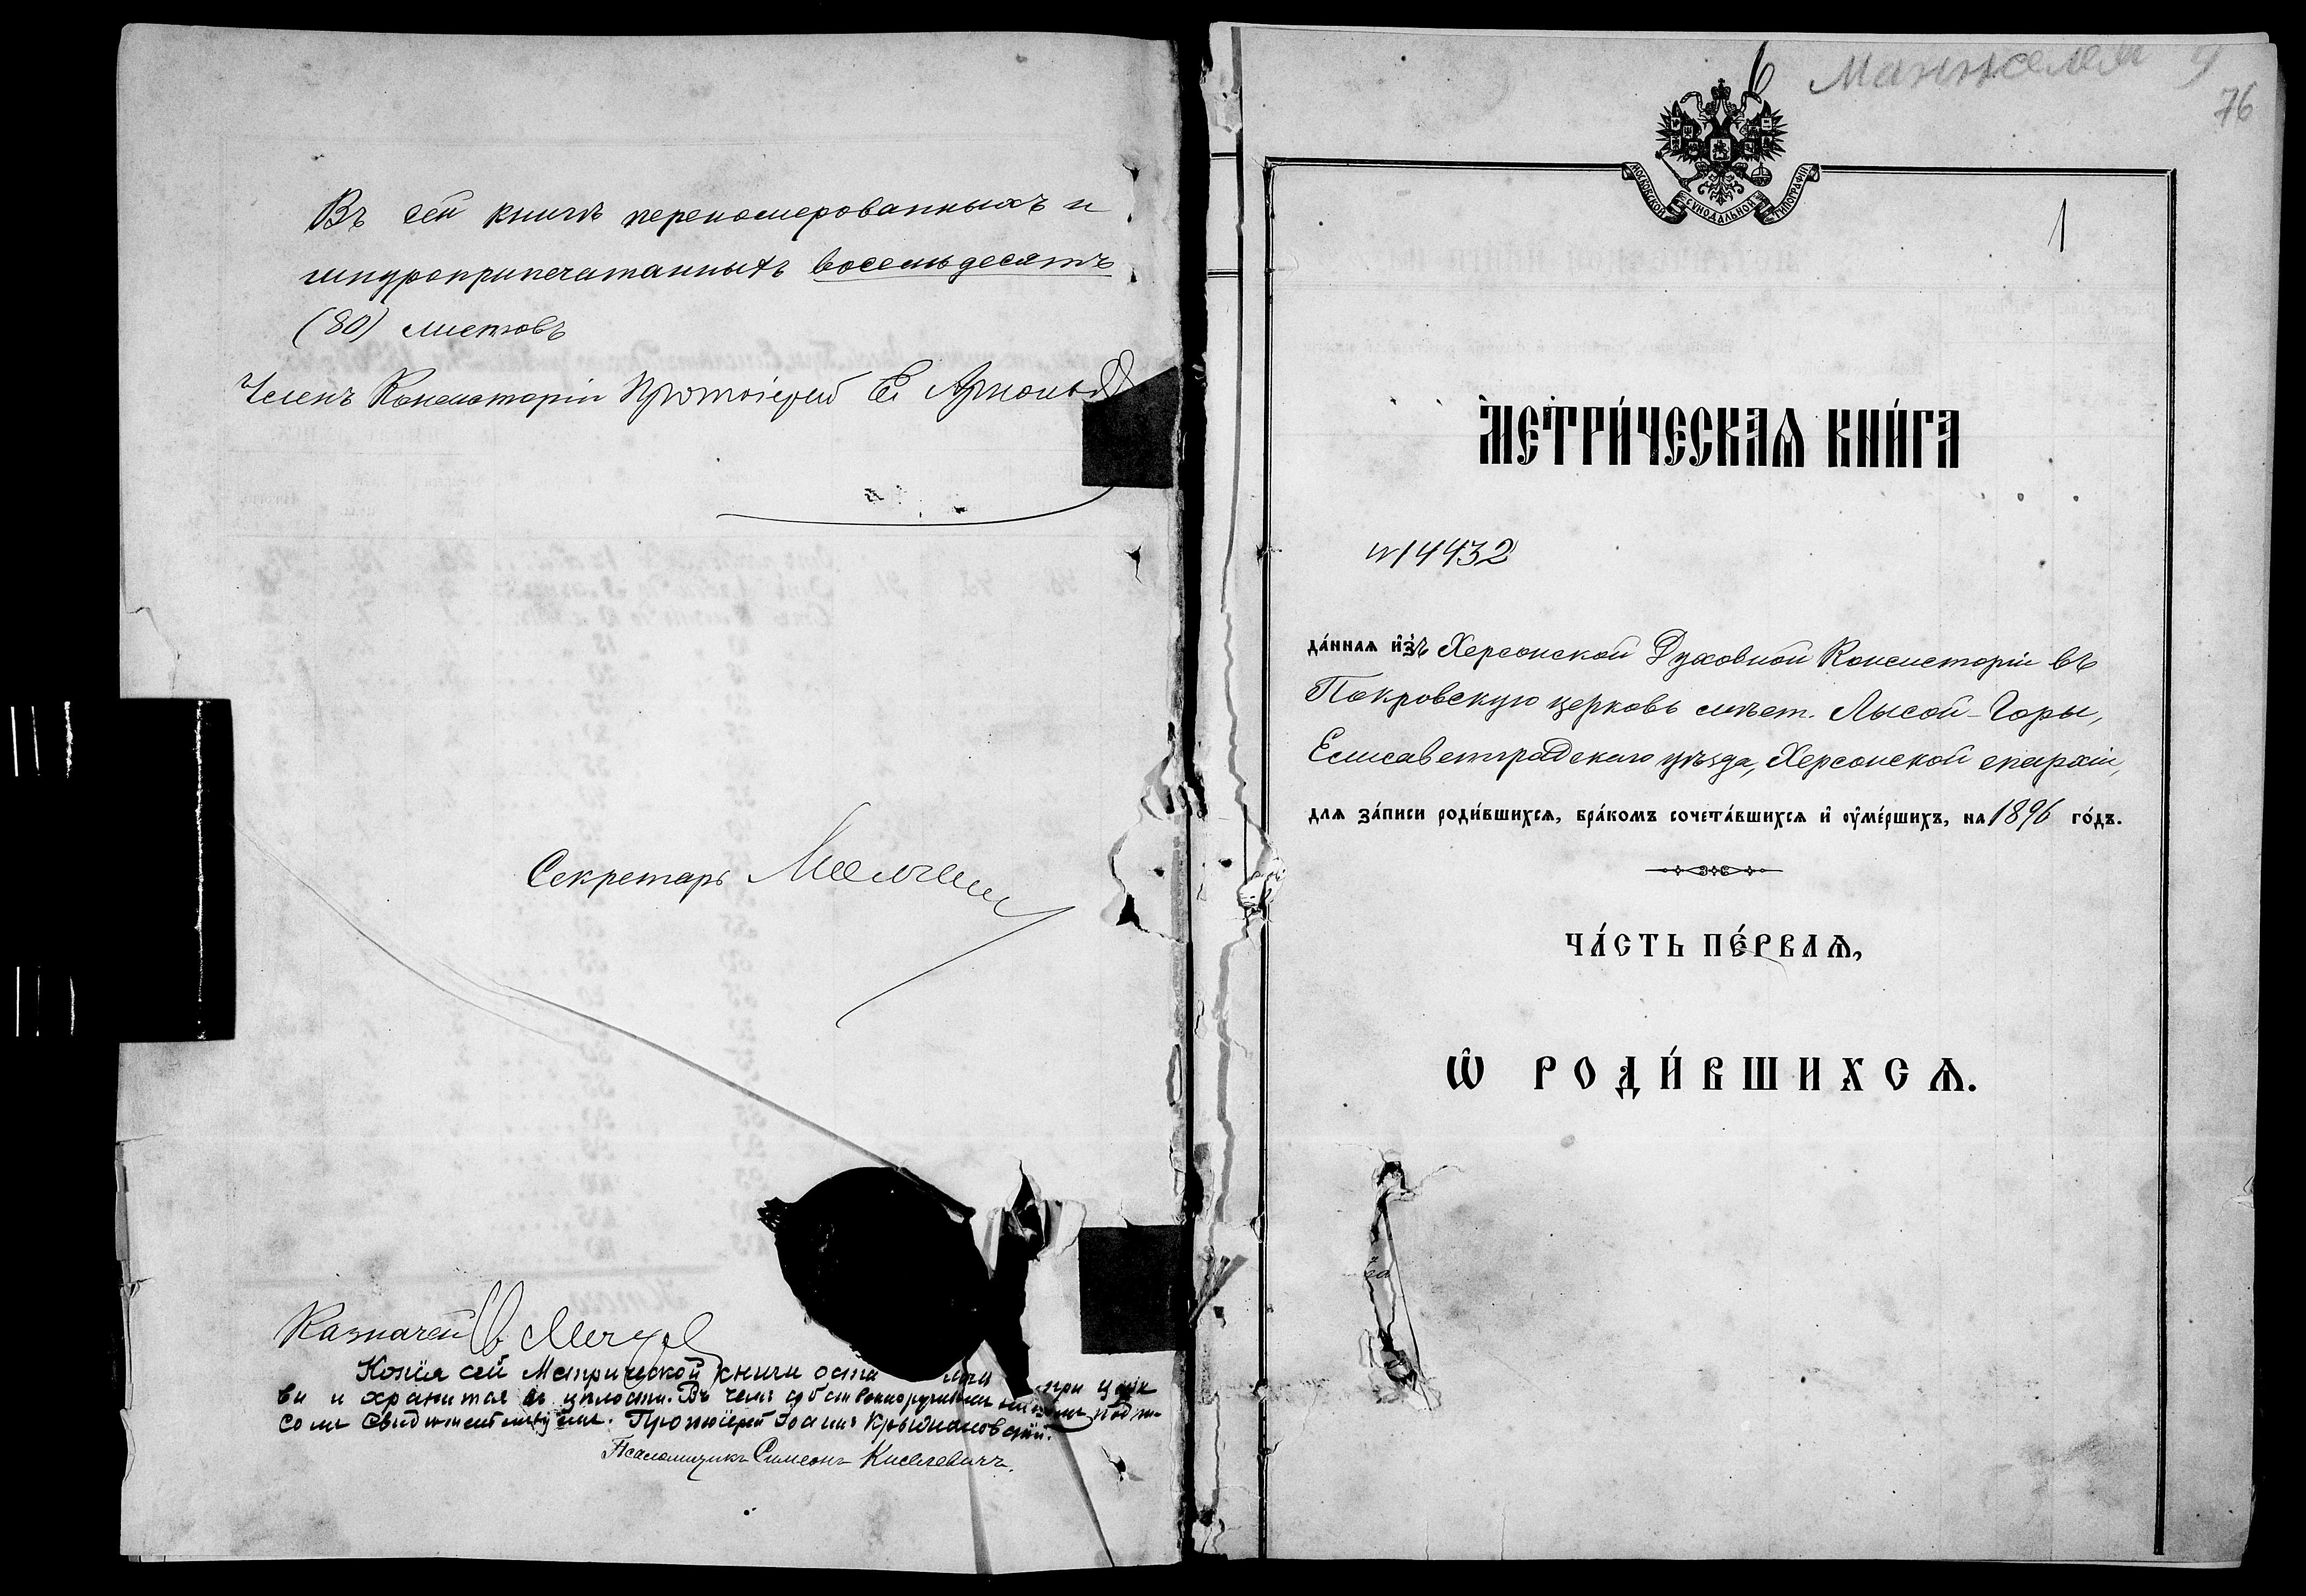 Въ сей книгѣ переномерованныхъ и
шнуроприпечатанныхъ восемьдесятъ
(80) листовъ
Членъ Консисторіи Протоіерей
Секретарь
Казначей
Копія сей Метрической книги при церк
ви и хранится въ цѣлости. Въ чемъ собственноручнымъ подпи-
сомъ свидѣтельствуемъ. Протоіерей Іоаннъ Крыжановскій.
Псаломщикъ Симеонъ Киселевичъ.
76
МОСКОВСКОЙ СѴНОДАЛЬНОЙ ТИПОГРАФІИ
1
МЕТРИ́ЧЕСКАѦ КНИ́ГА
№14432
да́ннаѧ и҆зъ Херсонской Духовной Консисторіи въ
Покровскую церковь мѣст. Лысой-Горы,
Елисаветградскаго уѣзда, Херсонской епархіи,
длѧ за́писи роди́вшихсѧ, бра́комъ сочета́вшихсѧ и҆ оу҆ме́ршихъ, на 1896 го́дъ.
ЧА́СТЬ ПЕ́РВАѦ,
Ѽ РОДИ́ВШИХСѦ.